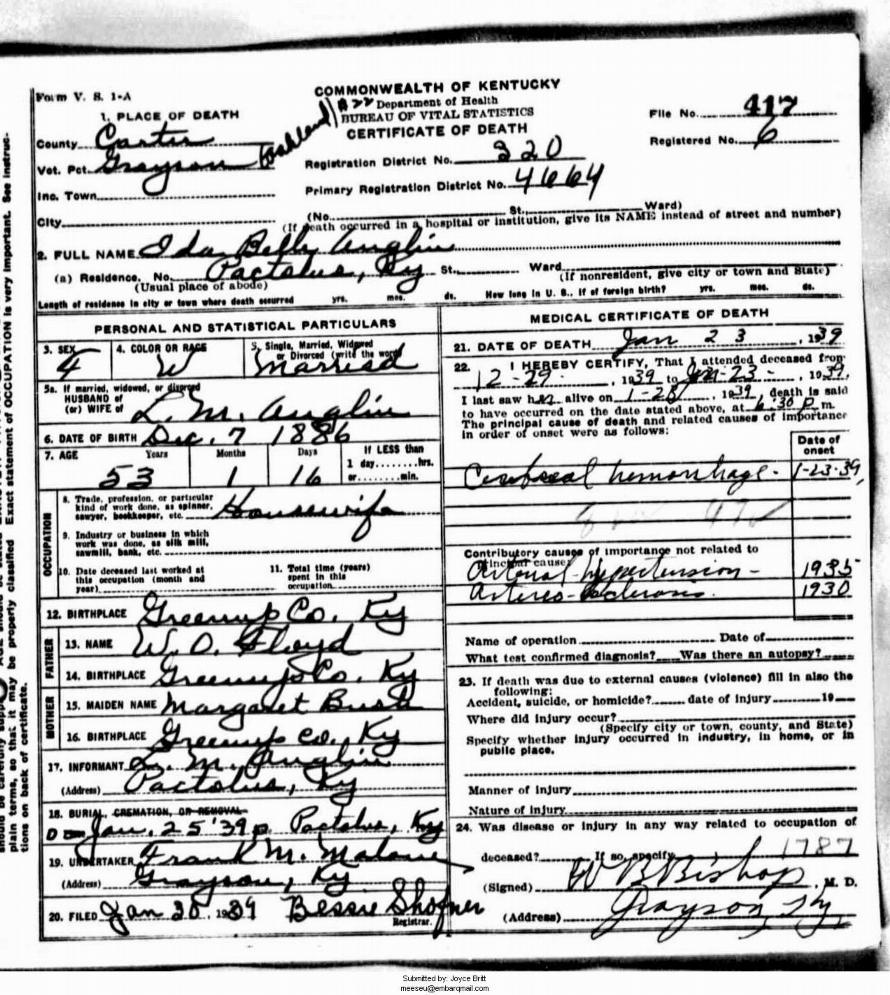 Form V. S. 1-A
COMMONWEALTH OF KENTUCKY
Department of Health
BUREAU OF VITAL STATISTICS
CERTIFICATE OF DEATH
File No. 417
Registered No. 6
1. PLACE OF DEATH
County Carter
Vot. Pct. Grayson
Inc. Town
City
Registration District No. 320
Primary Registration District No. 4664
(No. St. Ward)
(If death occurred in a hospital or institution, give its NAME instead of street and number)
2. FULL NAME Ida Belle Anglin
(a) Residence. No. Pactolus, Ky St. Ward
(Usual place of abode)
(If nonresident, give city or town and State)
Length of residence in city or town where death occurred yrs. mos. ds. How long in U. S., if of foreign birth? yrs. mos. ds.
PERSONAL AND STATISTICAL PARTICULARS
3. SEX
4. COLOR OR RACE W
5. Single, Married, Widowed
or Divorced (write the word)
Married
5a. If married, widowed, or divorced
HUSBAND of
(or) WIFE of L. M. Anglin
6. DATE OF BIRTH Dec. 7 1886
7. AGE Years Months Days
53 1 16
If LESS than
1 day hrs.
or min.
OCCUPATION
8. Trade, profession, or particular
kind of work done, as spinner,
sawyer, bookkeeper, etc. Housewife
9. Industry or business in which
work was done, as silk mill,
sawmill, bank, etc.
10. Date deceased last worked at
this occupation (month and
year)
11. Total time (years)
spent in this
occupation
12. BIRTHPLACE Greenup Co. Ky
FATHER
13. NAME W. O. Floyd
14. BIRTHPLACE Greenup Co. Ky
MOTHER
15. MAIDEN NAME Margaret Bush
16. BIRTHPLACE Greenup Co. Ky
17. INFORMANT L. M. Anglin
(Address) Pactolus, Ky
18. BURIAL, CREMATION, OR REMOVAL
Jan. 25 '39 Pactolus, Ky
19. UNDERTAKER Frank M. Malone
(Address) Grayson, Ky.
20. FILED Jan 30, 1939 Bessie Shofner
Registrar.
MEDICAL CERTIFICATE OF DEATH
21. DATE OF DEATH Jan 23, 1939
22. I HEREBY CERTIFY, That I attended deceased from
12-29-, 1939 to Jan-23-, 1939,
I last saw her alive on 1-23, 1939, death is said
to have occurred on the date stated above, at 6:30 p m.
The principal cause of death and related causes of importance
in order of onset were as follows:
Date of
onset
Cerebral hemorrhage- 1-23-39,
Contributory causes of importance not related to
principal cause:
Arterial hypertension- 1935
Arterio-sclerosis. 1930
Name of operation Date of
What test confirmed diagnosis? Was there an autopsy?
23. If death was due to external causes (violence) fill in also the
following:
Accident, suicide, or homicide? date of injury 19
Where did injury occur?
(Specify city or town, county, and State)
Specify whether injury occurred in industry, in home, or in
public place.
Manner of injury
Nature of injury
24. Was disease or injury in any way related to occupation of
deceased? If so, specify 1787
(Signed) W B Bishop, M. D.
(Address) Grayson Ky
plain terms, so that it may be properly classified Exact statement of OCCUPATION is very important. See instruc-
tions on back of certificate.
Submitted by: Joyce Britt
meeseu@embarqmail.com